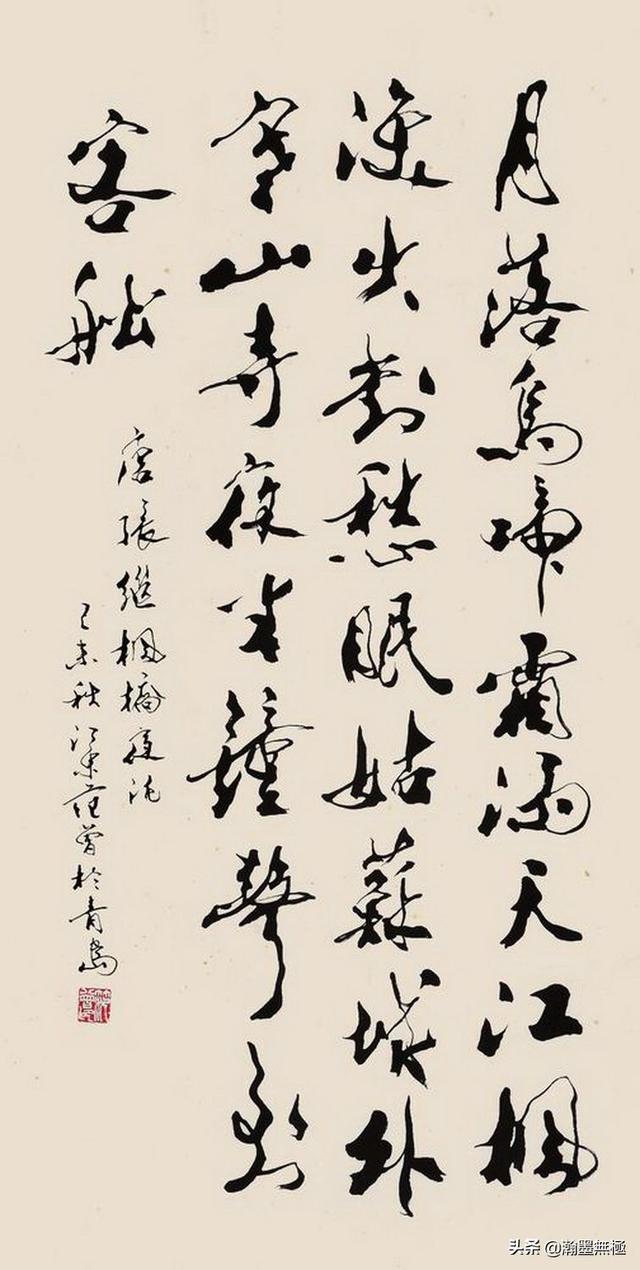 月落烏啼霜滿天江楓
漁火對愁眠姑蘇城外
寒山寺夜半鐘聲到
客船
唐張繼楓橋夜泊
己未秋江東范曾於青島
头条 @瀚墨無極